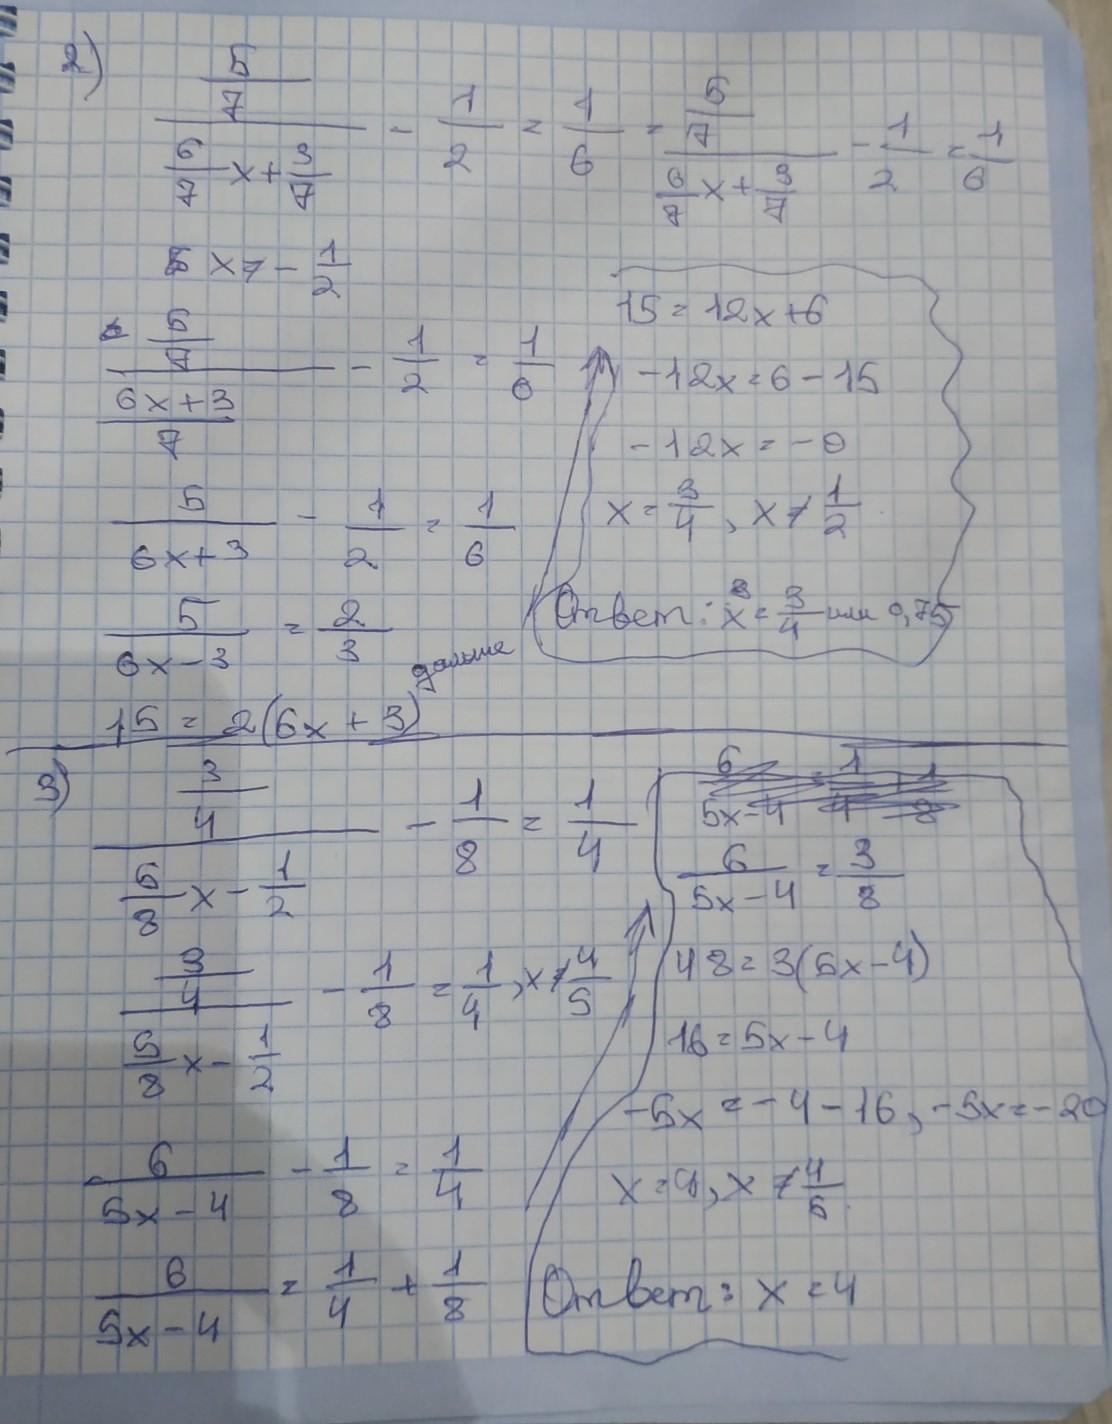 2) (5/7)/(6/7 x + 3/7) - 1/2 = 1/6 = (5/7)/(6/7 x + 3/7) - 1/2 = 1/6
x7 - 1/2
(5/7)/((6x+3)/7) - 1/2 = 1/6
5/(6x+3) - 1/2 = 1/6
5/(6x-3) = 2/3
15 = 2(6x + 3) дальше
15 = 12x+6
-12x = 6 - 15
-12x = -9
x = 3/4, x ≠ 1/2
Ответ: x = 3/4 или 0,75
3) (3/4)/(5/8 x - 1/2) - 1/8 = 1/4
(3/4)/(5/8 x - 1/2) - 1/8 = 1/4, x ≠ 4/5
6/(5x-4) - 1/8 = 1/4
6/(5x-4) = 1/4 + 1/8
6/(5x-4) = 3/8
48 = 3(5x-4)
16 = 5x-4
-5x = -4-16, -5x = -20
x = 4, x ≠ 4/5
Ответ: x = 4